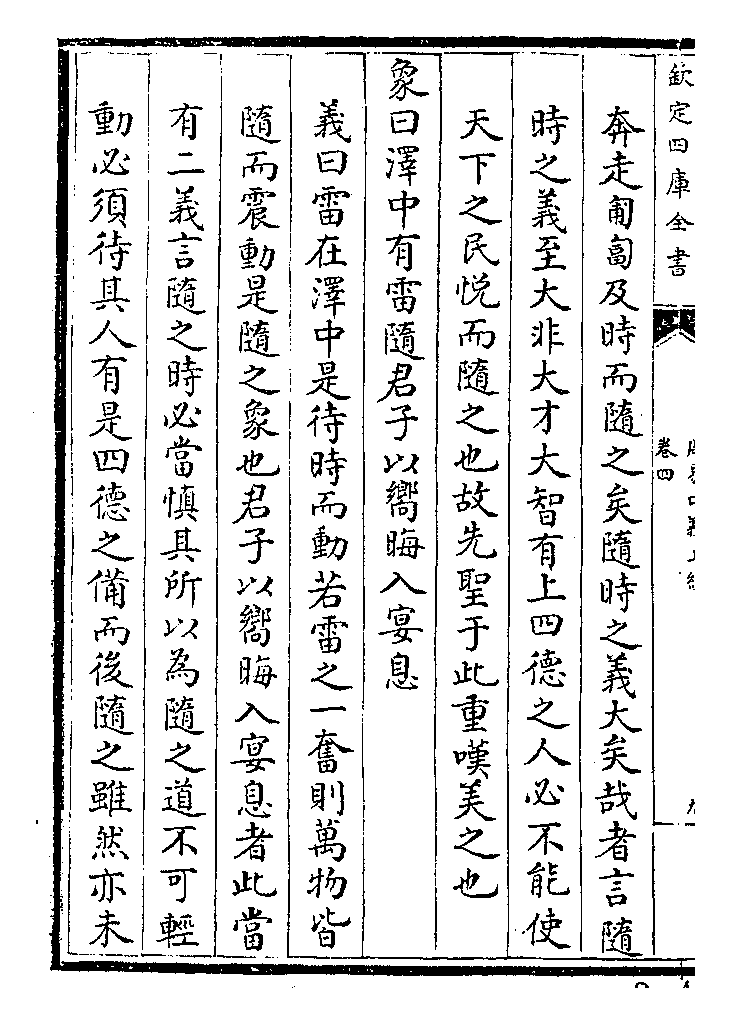 欽定四庫全書
卷四
奔走匍匐及時而隨之矣隨時之義大矣哉者言隨
時之義至大非大才大智有上四德之人必不能使
天下之民悦而隨之也故先聖于此重嘆美之也
象曰澤中有雷隨君子以嚮晦入宴息
義曰雷在澤中是待時而動若雷之一奮則萬物皆
隨而震動是隨之象也君子以嚮晦入宴息者此當
有二義言隨之時必當慎其所以為隨之道不可輕
動必須待其人有是四德之備而後隨之雖然亦未